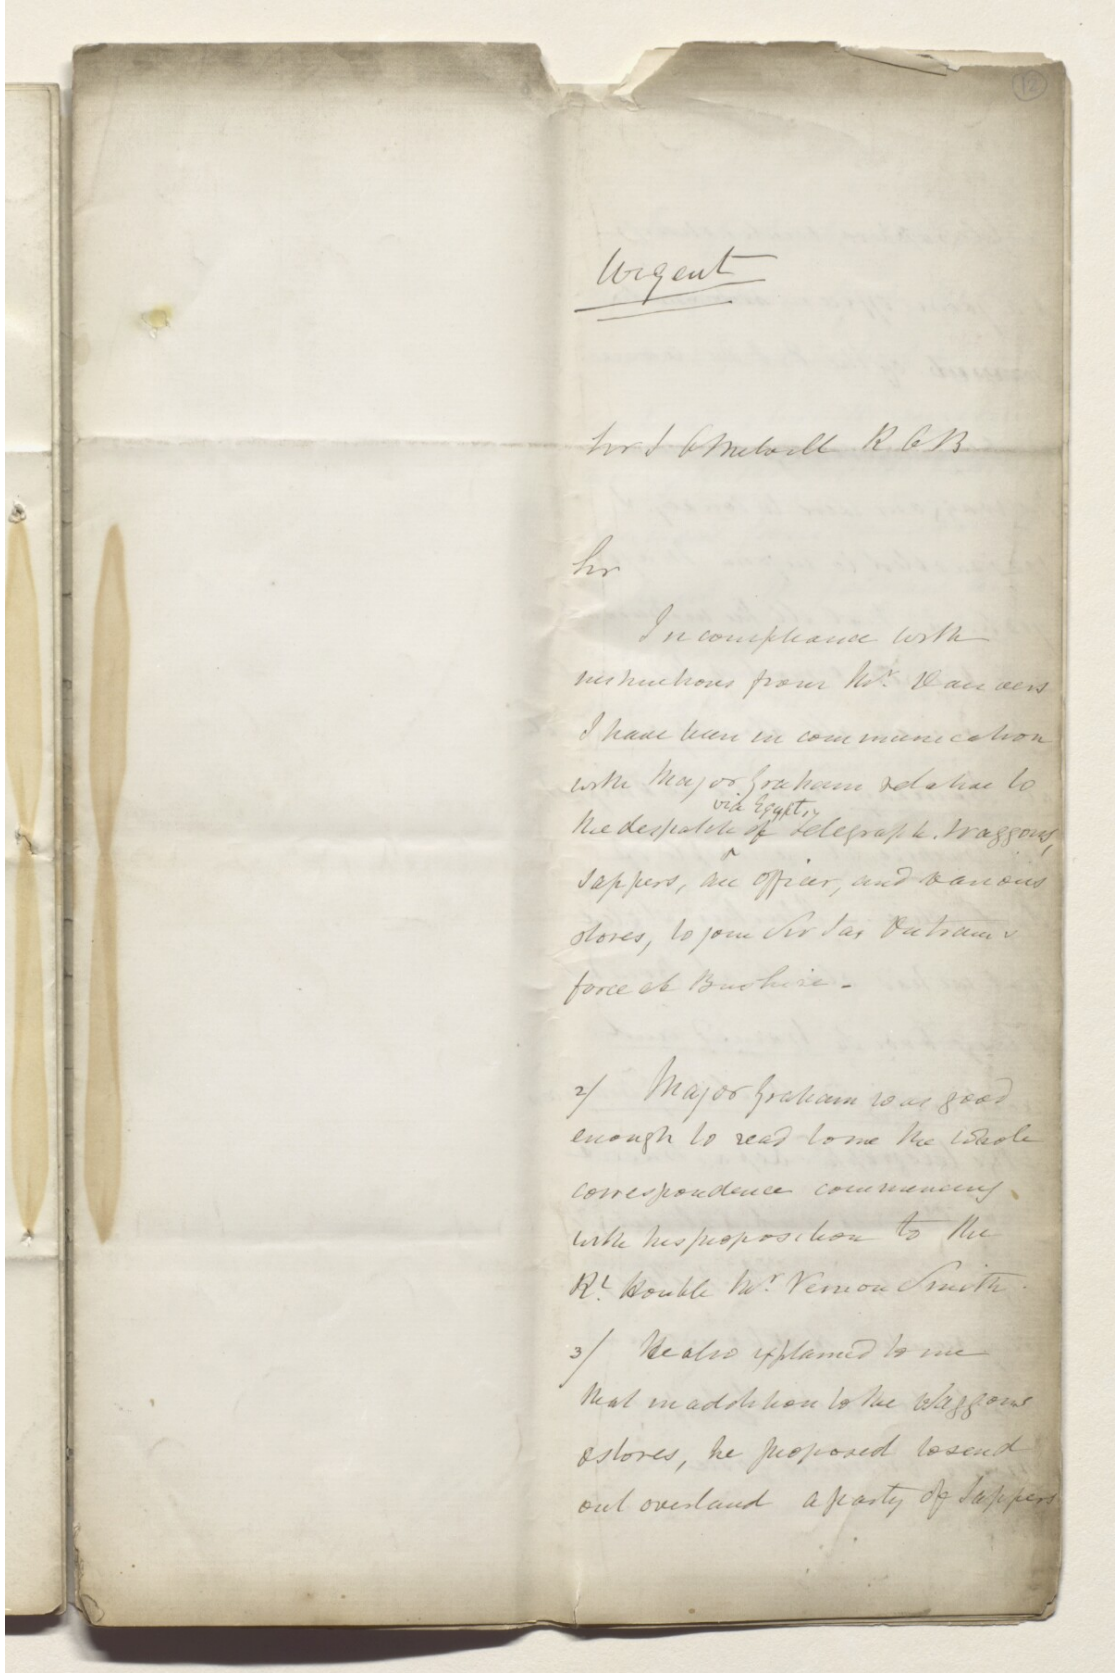 12
Urgent
Sir J C Melvill K C B
Sir
In compliance with
instructions from Mr. Danvers
I have been in communication
with Major Graham relative to
via Egypt,
the despatch of telegraph waggons,
Sappers, an officer, and various
stores, to join Sir Jas Outram's
force at Bushire -
2/ Major Graham was good
enough to read to me the whole
correspondence commencing
with his proposition to the
Rt. Honble Mr. Vernon Smith.
3/ He also explained to me
that in addition to the Waggons
& stores, he proposed to send
out overland a party of Sappers